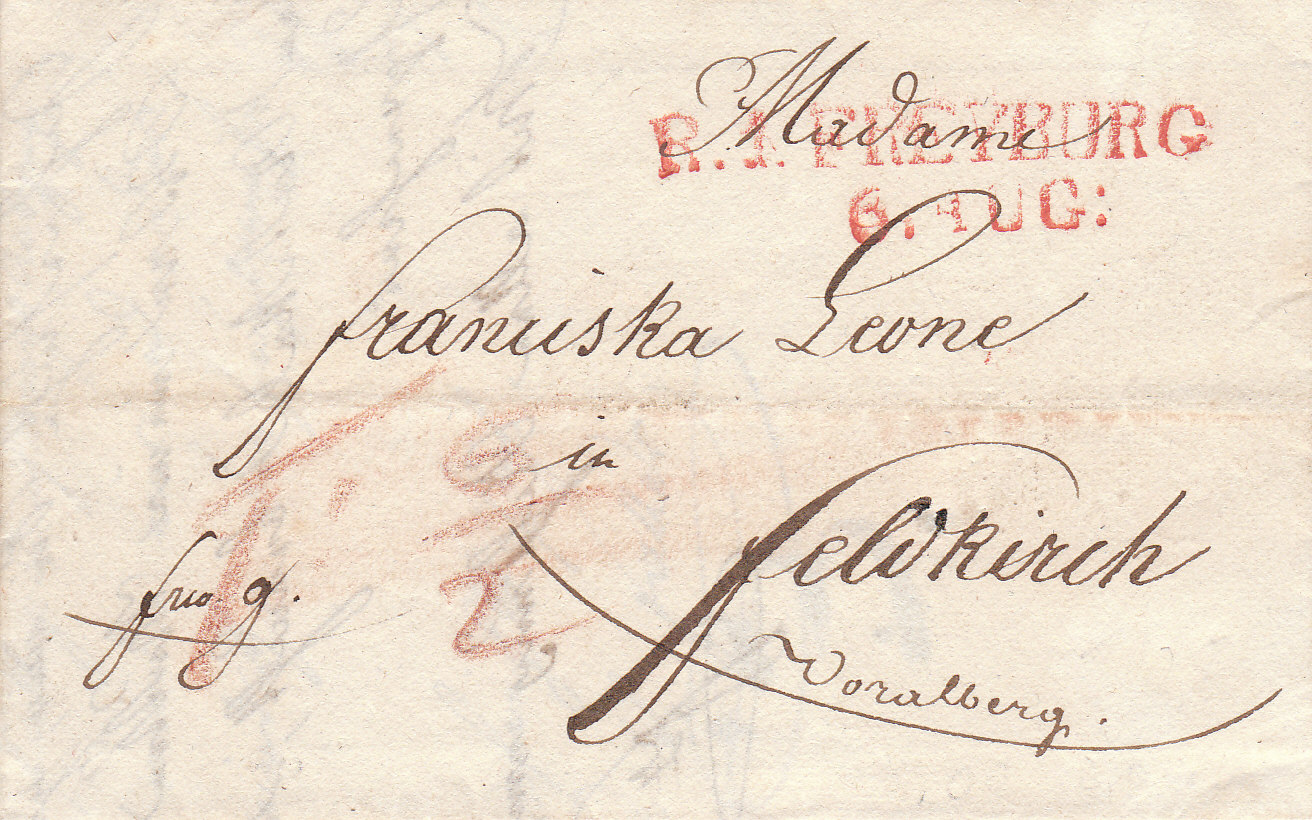 Madame
R. 1. FREYBURG
6. AUG:
Franciska Leone
in
6
2
Feldkirch
Voralberg.